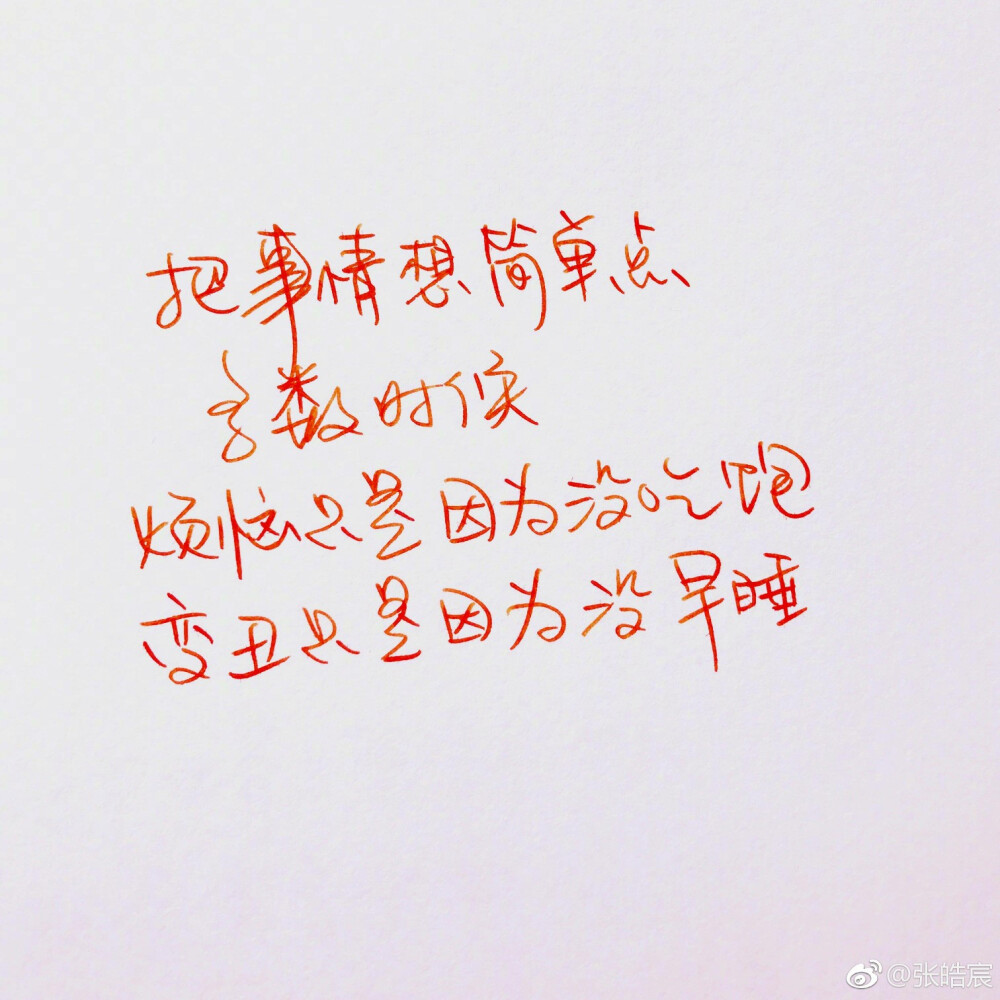 把事情想简单点
多数时候
烦恼只是因为没吃饱
变丑只是因为没早睡
@张皓宸